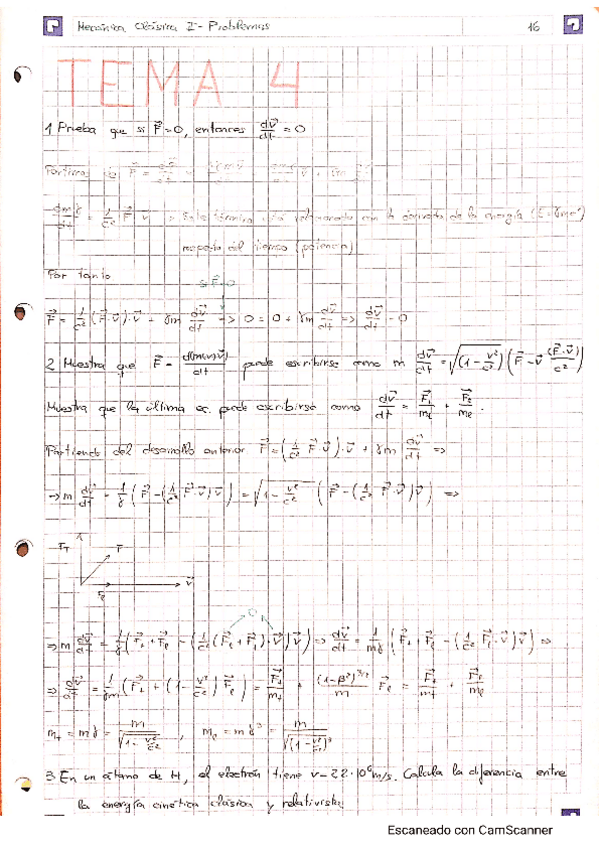 Mecánica Clásica I - Problemas 16
TEMA 4
1 Prueba que si F⃗=0, entonces dv⃗/dt = 0
Partimos de F⃗ =
= 1/c² F⃗ v⃗ Este término está relacionado con la derivada de la energía (E=γmc²)
respecto del tiempo (potencia)
Por tanto
si F⃗=0
F⃗ = 1/c² (F⃗·v⃗)·v⃗ + γm dv⃗/dt => 0 = 0 + γm dv⃗/dt => dv⃗/dt = 0
2 Muestra que F⃗ = d(m(v)v⃗)/dt puede escribirse como m dv⃗/dt = √(1 - v²/c²) (F⃗ - v⃗ (F⃗·v⃗)/c²)
Muestra que la última ec. puede escribirse como dv⃗/dt = F⃗t/mt + F⃗e/me.
Partiendo del desarrollo anterior F⃗ = (1/c² F⃗·v⃗)·v⃗ + γm dv⃗/dt =>
=> m dv⃗/dt = 1/γ (F⃗ - (1/c² F⃗·v⃗) v⃗) = √(1 - v²/c²) (F⃗ - (1/c² F⃗·v⃗) v⃗) =>
FT F⃗
Fe v⃗
0
=> m dv⃗/dt = 1/γ (F⃗t + F⃗e - (1/c² (F⃗e + F⃗t)·v⃗) v⃗) => dv⃗/dt = 1/mγ (F⃗t + F⃗e - (1/c² F⃗e·v⃗) v⃗) =>
=> dv⃗/dt = 1/γm (F⃗t + (1 - v²/c²) F⃗e) = F⃗t/mt + (1-β²)^3/2/m F⃗e = F⃗t/mt + F⃗e/me
mt = mγ = m/√(1 - v²/c²) , me = mγ³ = m/√(1 - v²/c²)³
3 En un átomo de H, el electrón tiene v=2.2·10⁶m/s. Calcula la diferencia entre
la energía cinética clásica y relativista.
Escaneado con CamScanner